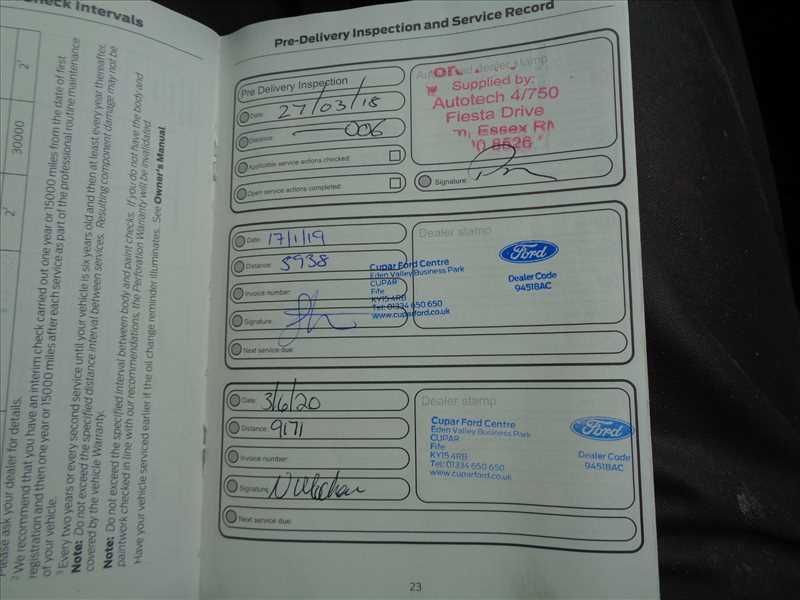 Check Intervals
2¹
30000
2¹
Please ask your dealer for details.
² We recommend that you have an interim check carried out one year or 15000 miles from the date of first
registration and then one year or 15000 miles after each service as part of the professional routine maintenance
of your vehicle.
³ Every two years or every second service until your vehicle is six years old and then at least every year thereafter.
Note: Do not exceed the specified distance interval between services. Resulting component damage may not be
covered by the vehicle Warranty.
Note: Do not exceed the specified interval between body and paint checks. If you do not have the body and
paintwork checked in line with our recommendations, the Perforation Warranty will be invalidated.
Have your vehicle serviced earlier if the oil change reminder illuminates. See Owner's Manual.
Pre-Delivery Inspection and Service Record
Pre Delivery Inspection
Date: 27/03/18
Distance: 006
Applicable service actions checked:
Open service actions completed:
dealer stamp
Supplied by:
Autotech 4/750
Fiesta Drive
Essex RM
8526
Signature:
Date: 17/1/19
Distance: 5938
Invoice number:
Signature:
Next service due:
Dealer stamp
Cupar Ford Centre
Eden Valley Business Park
CUPAR
Fife
KY15 4RB
Tel: 01334 650 650
www.cuparford.co.uk
Ford
Dealer Code
94518AC
Date: 3/6/20
Distance: 9171
Invoice number:
Signature:
Next service due:
Dealer stamp
Cupar Ford Centre
Eden Valley Business Park
CUPAR
Fife
KY15 4RB
Tel: 01334 650 650
www.cuparford.co.uk
Ford
Dealer Code
94518AC
23